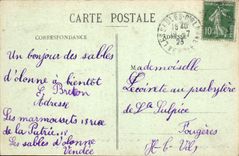 CARTE POSTALE
CORRESPONDANCE
Un bonjour des sables
d'olonne à bientôt
E Breton
Adresse
Les marmousets 15 rue
de la Patrie
Les sables d'Olonne
Vendée
10
Mademoiselle
Lecointe au presbytère
de St Sulpice
Fougères